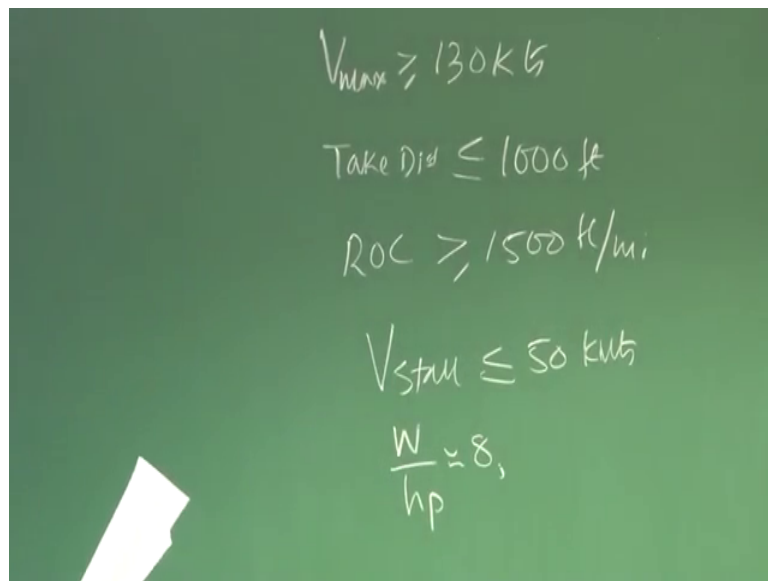 Vmax ≥ 130 Kts
Take Dist ≤ 1000 ft
ROC ≥ 1500 ft/mi
Vstall ≤ 50 knts
W/hp ≃ 8,